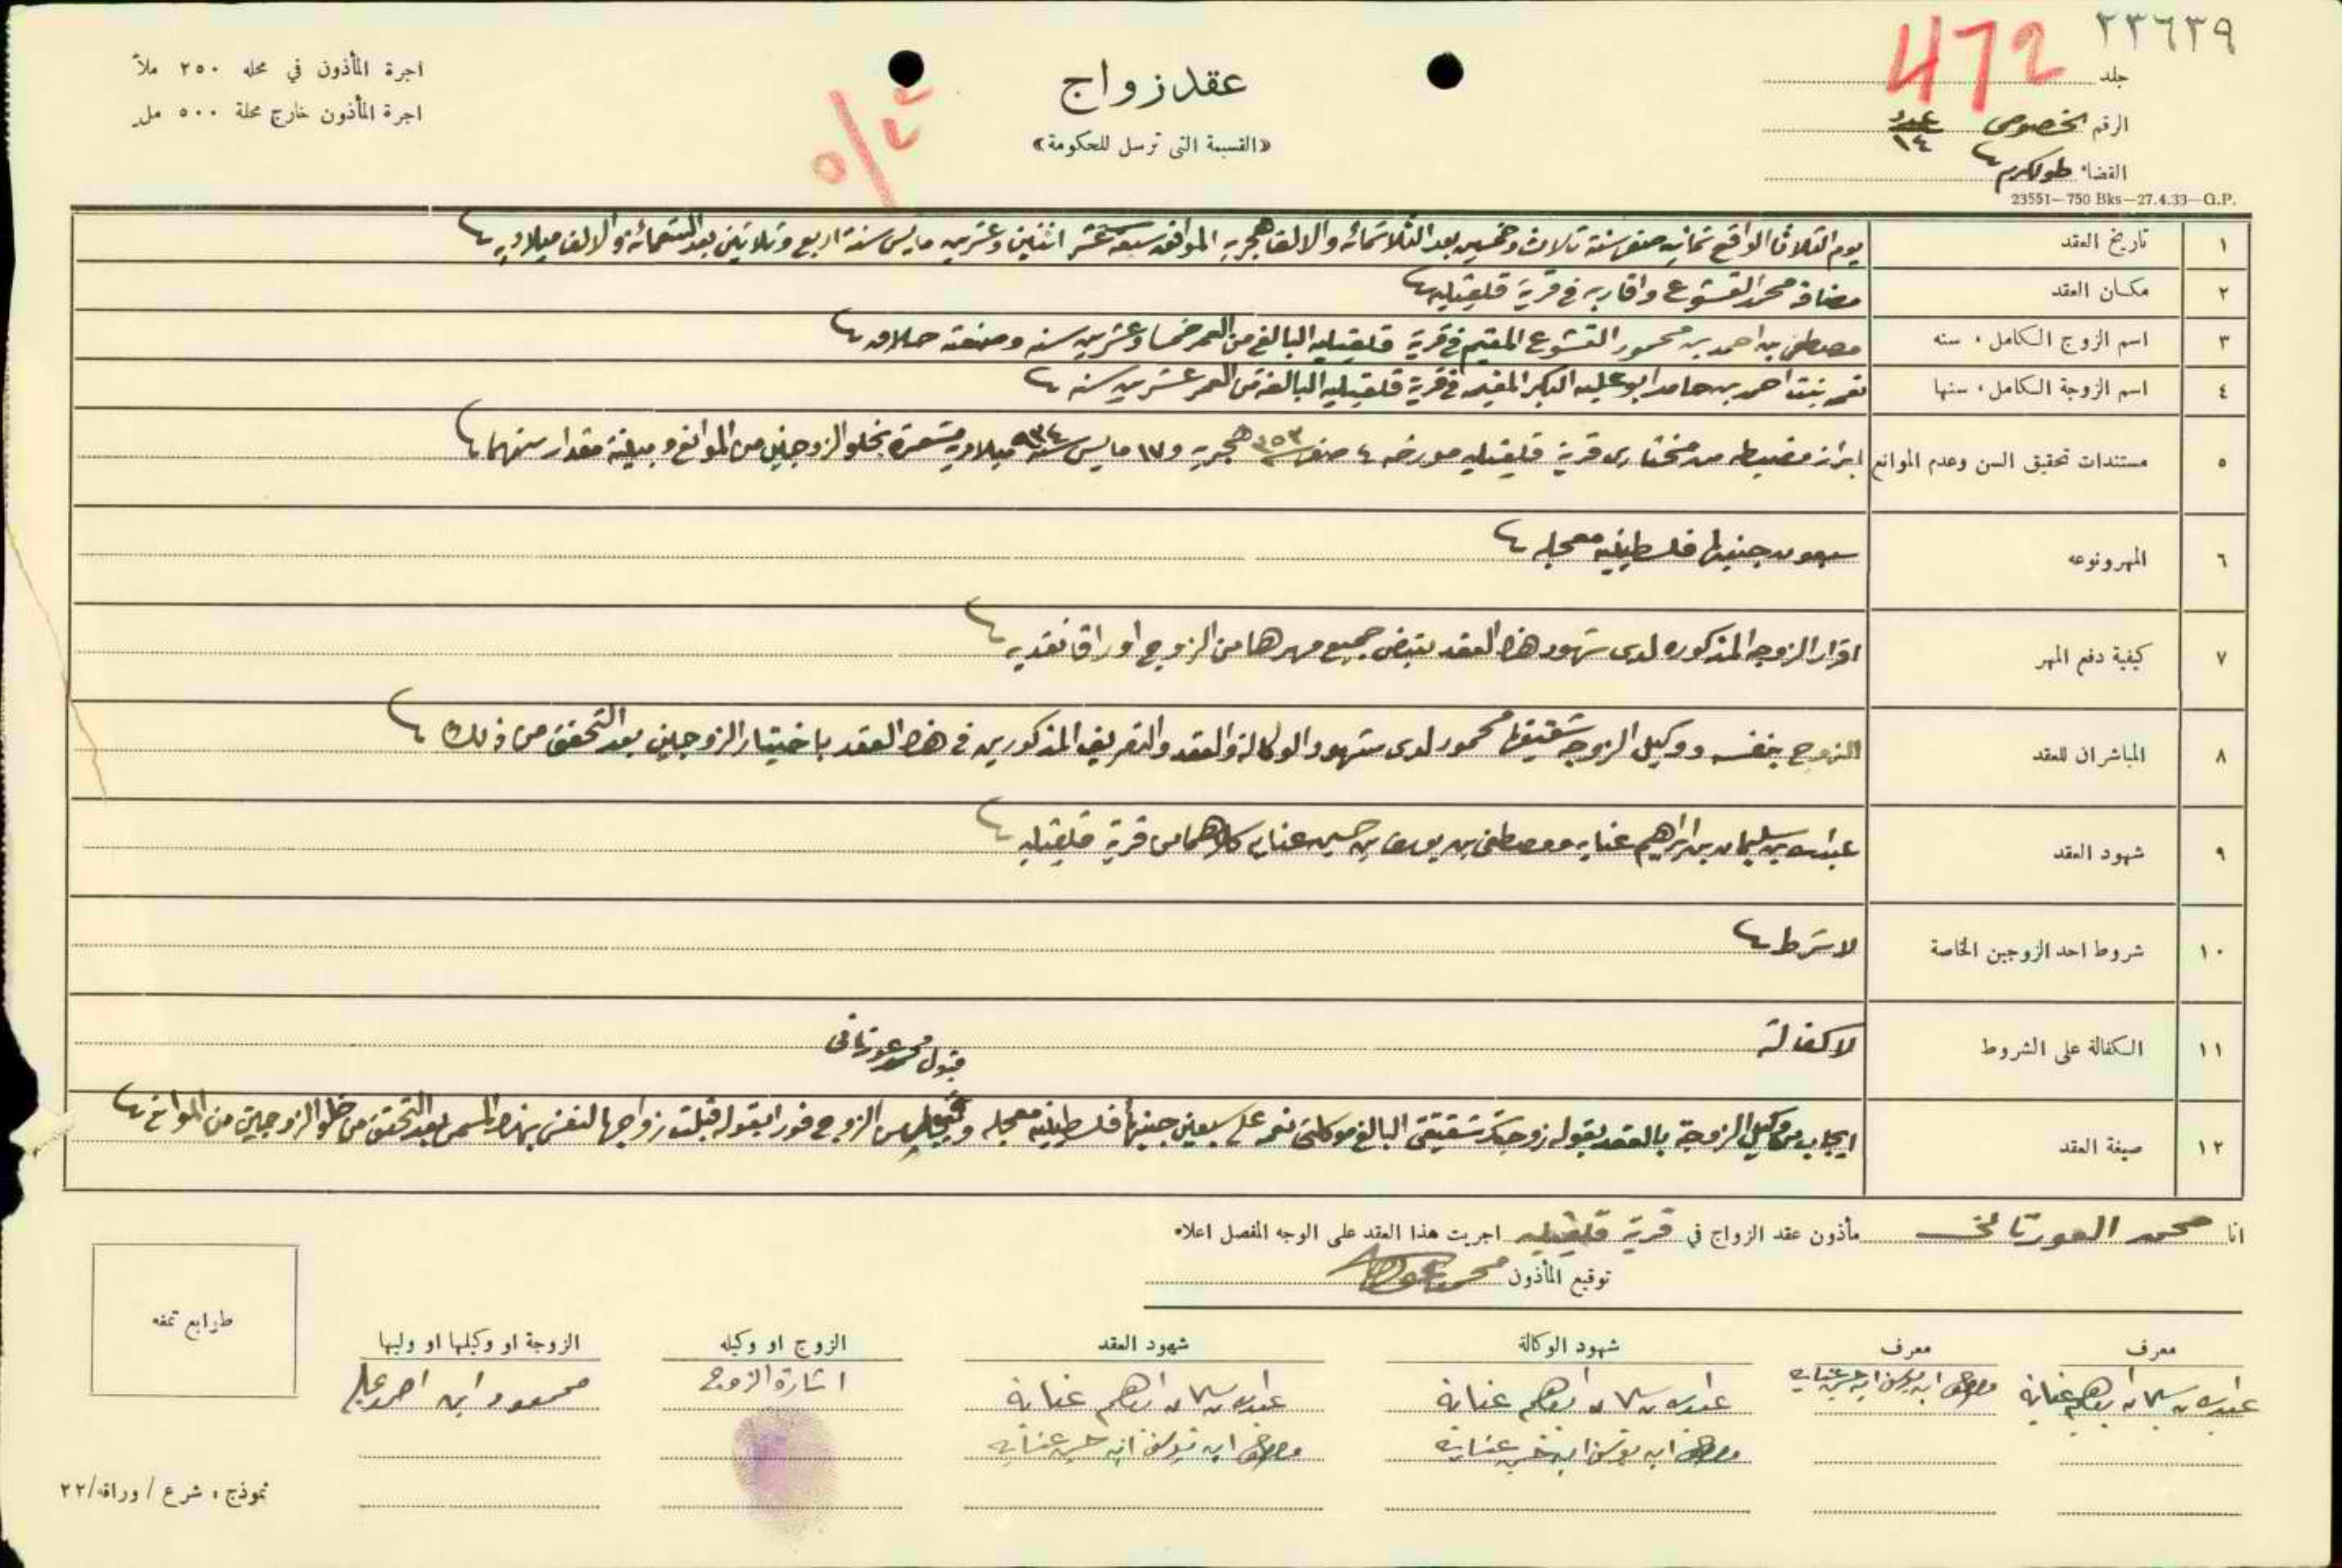 ٢٣٦٣٩
472
جلد
الرقم الخصوصي عدد ١٤
القضاء طولكرم
23551—750 Bks—27.4.33—G.P.
عقد زواج
«القسيمة التى ترسل للحكومة»
اجرة المأذون في محله ٢٥٠ ملاً
اجرة المأذون خارج محلة ٥٠٠ مل
١ تاريخ العقد يوم الثلاثا الواقع ثمانيه صفر سنة ثلاث وخمسين بعد الثلاثمائه والالف هجريه الموافقه سبعة عشر اثنتين وعشرين مايس سنة اربع وثلاثين بعد التسعمائة والالف ميلاديه
٢ مكان العقد مضافة محمد القشوع واقاربه في قرية قلقيليه
٣ اسم الزوج الكامل، سنه مصطفى بن احمد بن محمود القشوع المقيم في قرية قلقيليه البالغ من العمر خمسا وعشرين سنه وصنعته حلاق
٤ اسم الزوجة الكامل، سنها نعمه بنت احمد بن حامد ابو علبه البكر المقيمه في قرية قلقيليه البالغة من العمر عشرين سنه
٥ مستندات تحقيق السن وعدم الموانع ابراز مضبطه من مختاري قرية قلقيليه مورخه ٤ صفر سنة ٣٥٣ هجريه و ١٧ مايس سنة ٩٣٤ ميلاديه مشعرة بخلو الزوجين من الموانع ومبينة مقدار سنهما
٦ المهر ونوعه سبعون جنيها فلسطينيه معجله
٧ كيفية دفع المهر اقرار الزوجه المذكوره لدى شهود هذا العقد بقبض جميع مهرها من الزوج اوراقا نقديه
٨ المباشران للعقد الزوج بنفسه ووكيل الزوجه شقيقها محمود لدى شهود الوكالة والعقد والتعريف المذكورين في هذا العقد باختيار الزوجين بعد التحقق من ذلك
٩ شهود العقد عبدالله بن سليمان بن ابراهيم عنايه ومصطفى بن يوسف بن حسين عنايه كلاهما من قرية قلقيليه
١٠ شروط احد الزوجين الخاصة لا شرط
١١ الكفالة على الشروط لا كفالة
قبول محمد عورتاني
١٢ صيغة العقد ايجاب من وكيل الزوجة بالعقد بقوله زوجتك شقيقتي البالغ موكلتي نعمه على سبعين جنيها فلسطينيه معجله من الزوج فورا بقوله قبلت زواجها لنفسي بهذا المسمى بعد التحقق من خلو الزوجين من الموانع
انا محمد العورتاني مأذون عقد الزواج في قرية قلقيليه اجريت هذا العقد على الوجه المفصل اعلاه
توقيع المأذون
معرف
عبدالله بن سليمان ابراهيم عناية
معرف
مصطفى ابن يوسف ابن حسين عنايه
شهود الوكالة
عبدالله بن سليمان ابراهيم عناية
مصطفى ابن يوسف ابن حسين عنايه
شهود العقد
عبدالله بن سليمان ابراهيم عناية
مصطفى ابن يوسف ابن حسين عنايه
الزوج او وكيله
اشارة الزوج
الزوجة او وكيلها او وليها
محمود ابن احمد
طوابع تمغه
نموذج، شرع / وراقه/٢٢